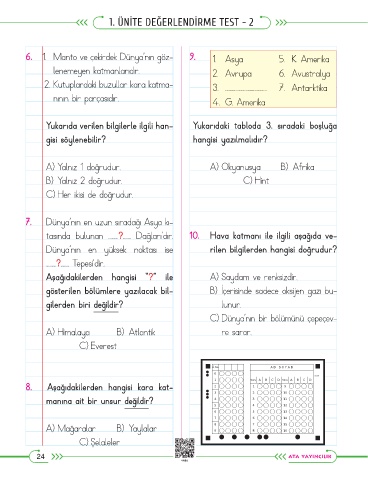 1. ÜNİTE DEĞERLENDİRME TEST - 2
6. 1. Manto ve çekirdek Dünya'nın göz-
lenemeyen katmanlarıdır.
2. Kutuplardaki buzullar kara katma-
nının bir parçasıdır.
Yukarıda verilen bilgilerle ilgili han-
gisi söylenebilir?
A) Yalnız 1 doğrudur.
B) Yalnız 2 doğrudur.
C) Her ikisi de doğrudur.
7. Dünya'nın en uzun sıradağı Asya kı-
tasında bulunan ....?.... Dağları'dır.
Dünya'nın en yüksek noktası ise
....?.... Tepesi'dir.
Aşağıdakilerden hangisi "?" ile
gösterilen bölümlere yazılacak bil-
gilerden biri değildir?
A) Himalaya B) Atlantik
C) Everest
8. Aşağıdakilerden hangisi kara kat-
manına ait bir unsur değildir?
A) Mağaralar B) Yaylalar
C) Şelaleler
24
9. 1. Asya 5. K. Amerika
2. Avrupa 6. Avustralya
3. 7. Antarktika
4. G. Amerika
Yukarıdaki tabloda 3. sıradaki boşluğa
hangisi yazılmalıdır?
A) Okyanusya B) Afrika
C) Hint
10. Hava katmanı ile ilgili aşağıda ve-
rilen bilgilerden hangisi doğrudur?
A) Saydam ve renksizdir.
B) İçerisinde sadece oksijen gazı bu-
lunur.
C) Dünya'nın bir bölümünü çepeçev-
re sarar.
AD SOYAD
A B C D A B C D
ATA YAYINCILIK